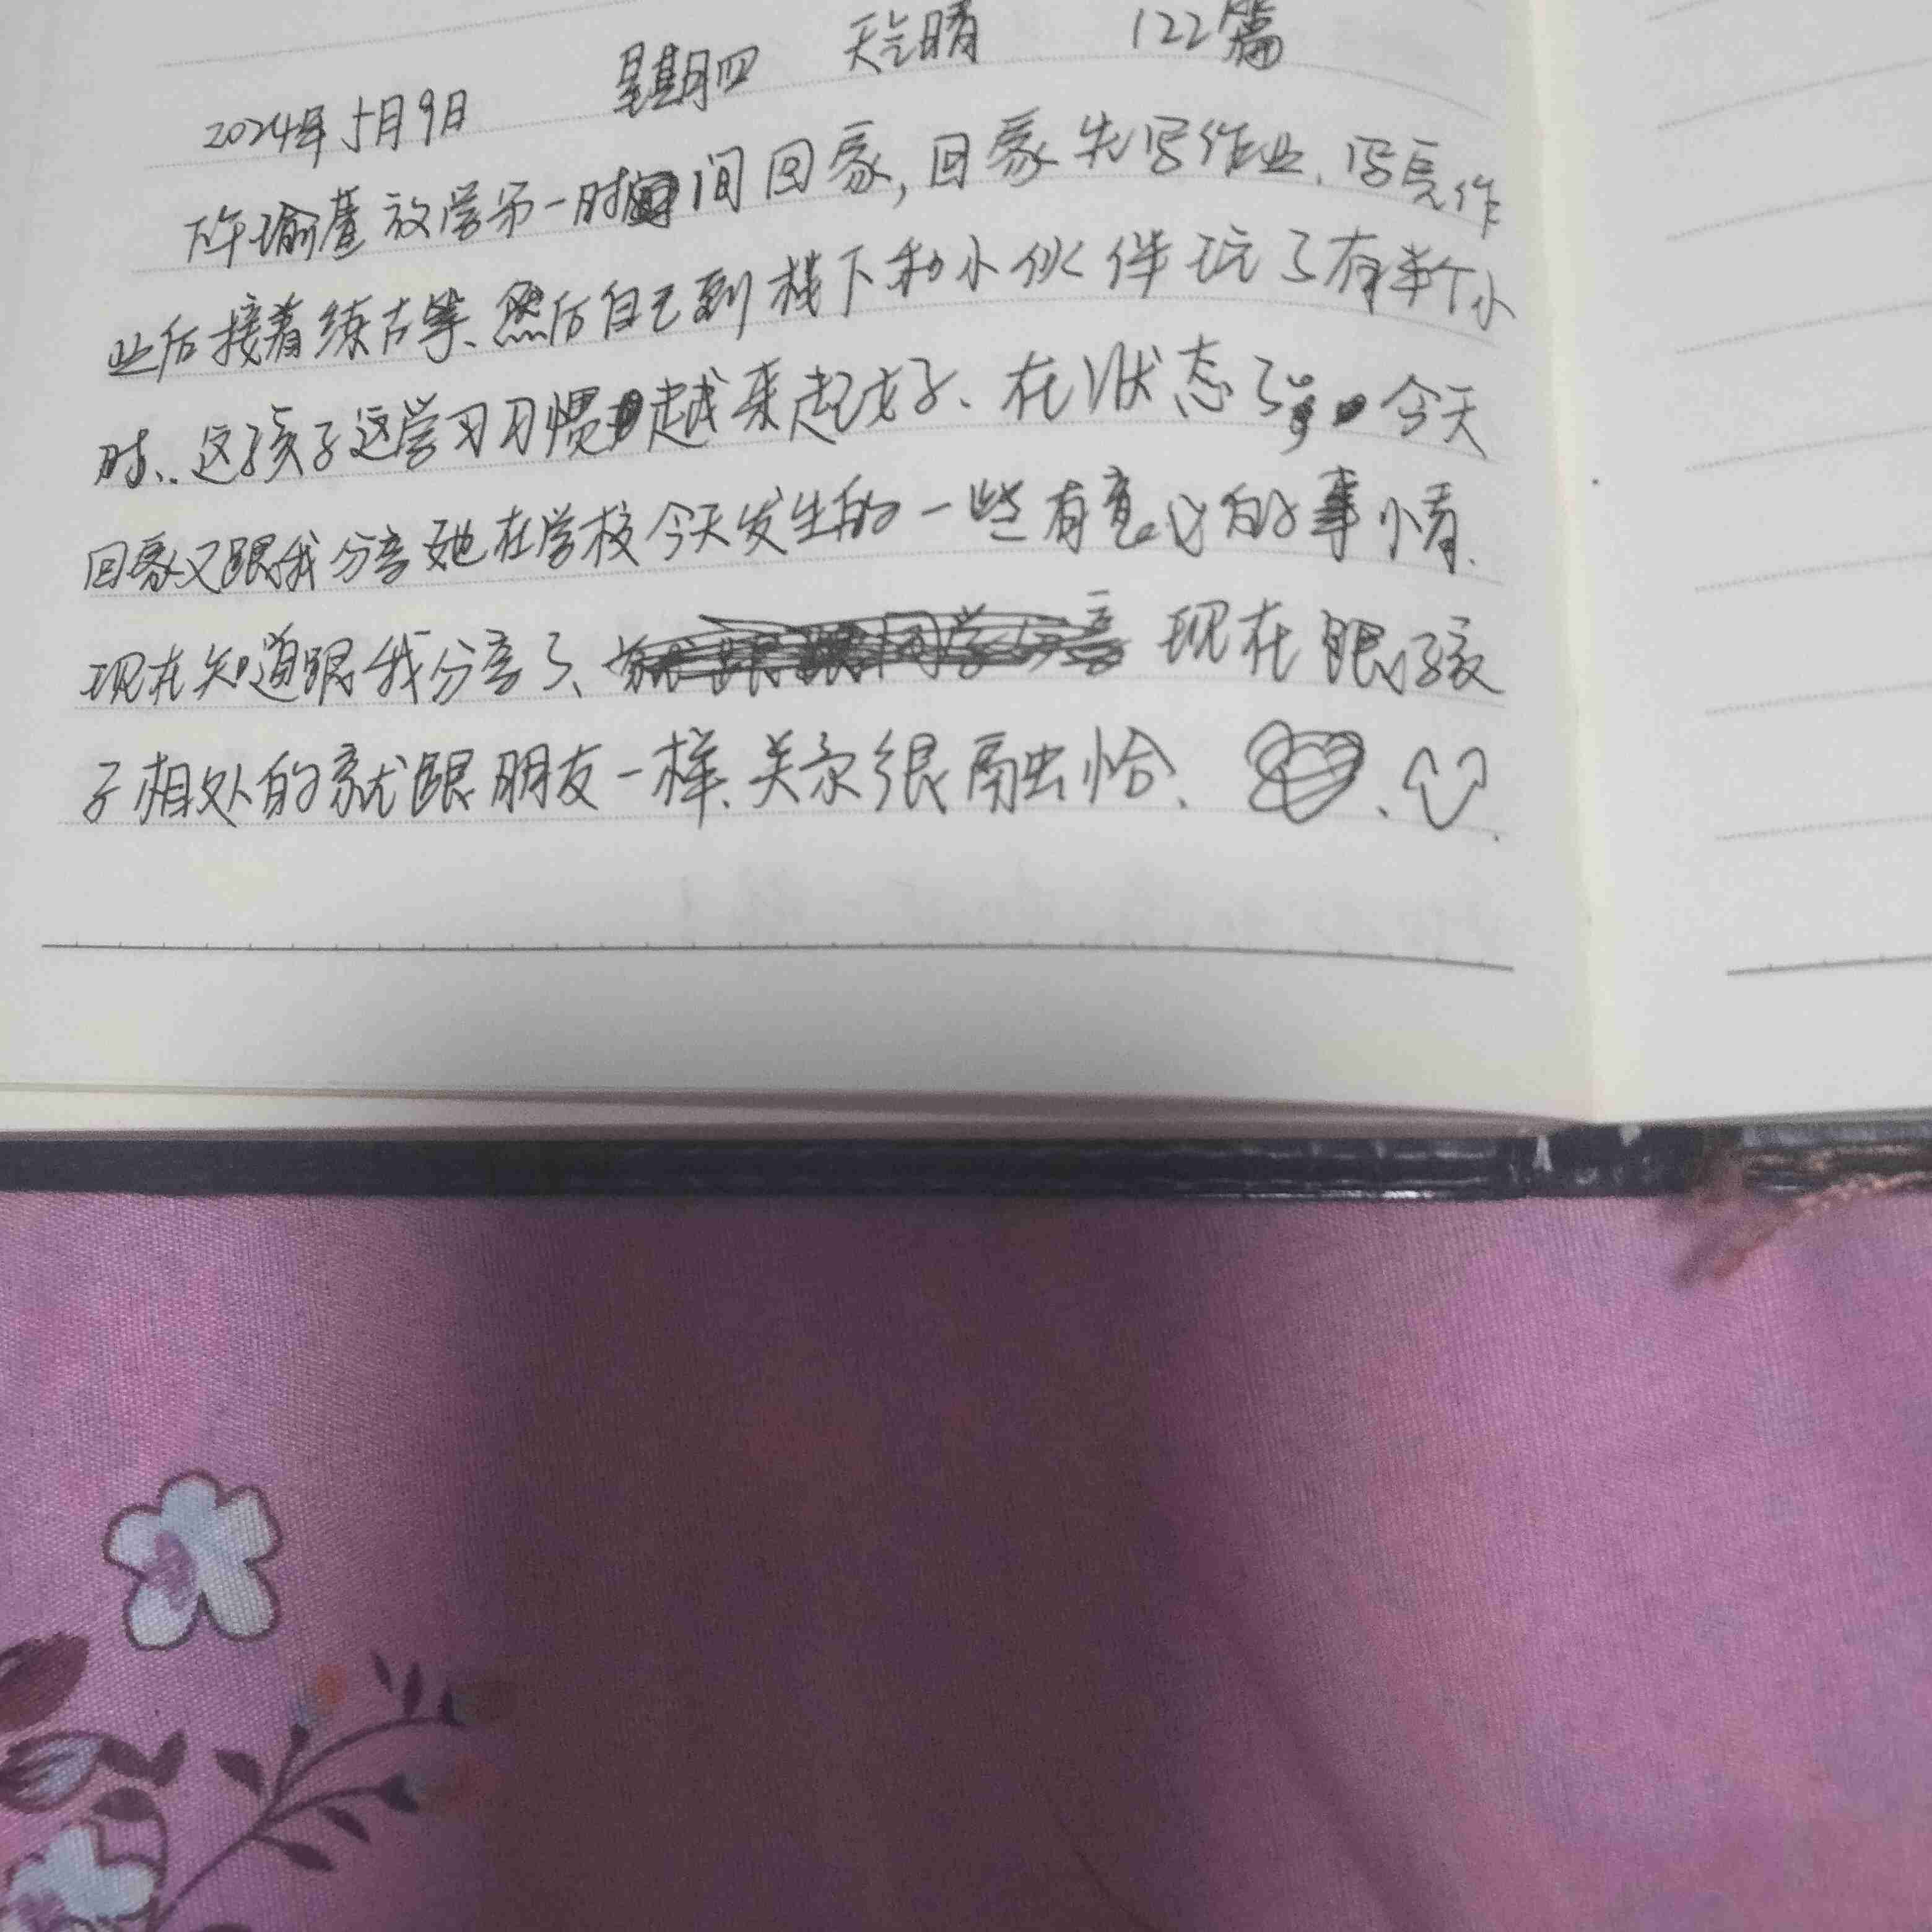 2024年5月9日 星期四 天气晴 122篇
下午瑜萱放学第一时间回家,回家先写作业、写完作
业后接着练古筝、然后自己到楼下和小伙伴玩了有半个小
时、这孩子这学习习惯越来起好、在状态了、今天
回家又跟我分享她在学校今天发生的一些有意义的事情、
现在知道跟我分享了、现在跟孩
子相处的就跟朋友一样、关系很融恰、